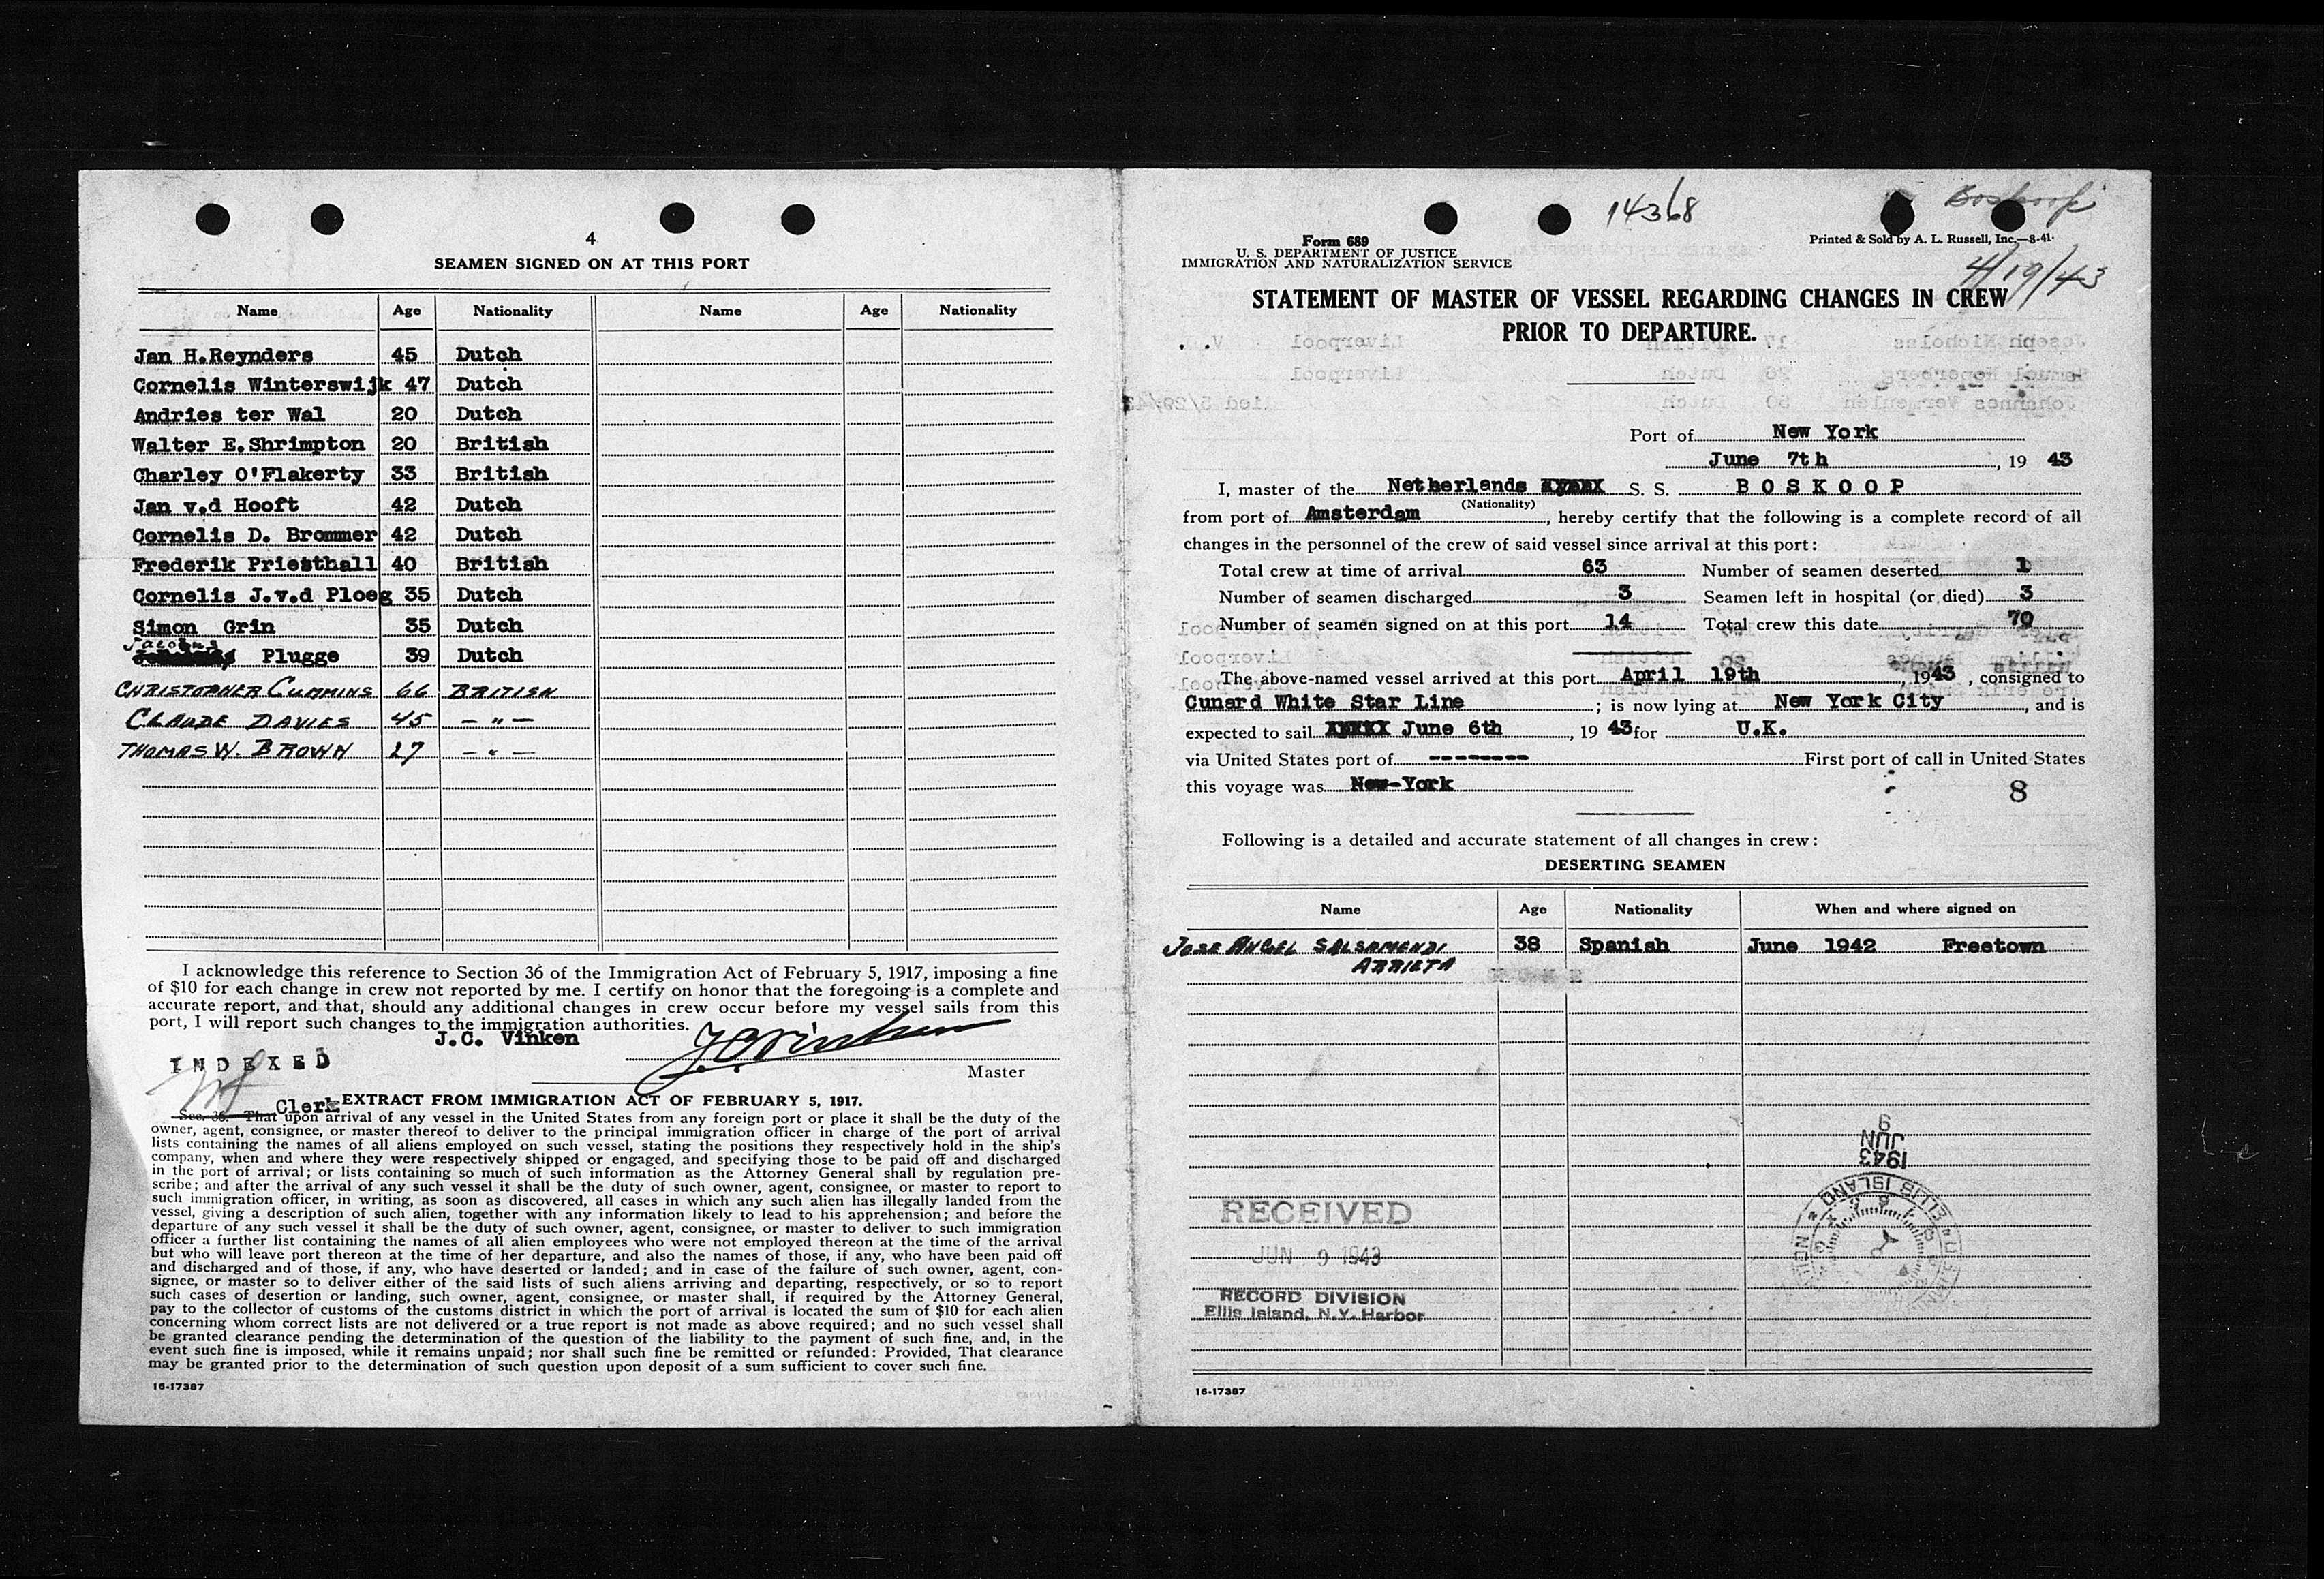 4
SEAMEN SIGNED ON AT THIS PORT
Name Age Nationality Name Age Nationality
Jan H.Reynders 45 Dutch
Cornelis Winterswijk 47 Dutch
Andries ter Wal 20 Dutch
Walter E.Shrimpton 20 British
Charley O'Flakerty 33 British
Jan v.d Hooft 42 Dutch
Cornelis D. Brommer 42 Dutch
Frederik Priesthall 40 British
Cornelis J.v.d Ploeg 35 Dutch
Simon Grin 35 Dutch
Jacobus
Plugge 39 Dutch
CHRISTOPHER CUMMINS 66 BRITISH
CLAUDE DAVIES 45 - " -
THOMAS W. BROWN 27 - " -
I acknowledge this reference to Section 36 of the Immigration Act of February 5, 1917, imposing a fine
of $10 for each change in crew not reported by me. I certify on honor that the foregoing is a complete and
accurate report, and that, should any additional changes in crew occur before my vessel sails from this
port, I will report such changes to the immigration authorities.
J.C. Vinken
JCVinken
Master
INDEXED
Clerk
EXTRACT FROM IMMIGRATION ACT OF FEBRUARY 5, 1917.
Sec. 36. That upon arrival of any vessel in the United States from any foreign port or place it shall be the duty of the
owner, agent, consignee, or master thereof to deliver to the principal immigration officer in charge of the port of arrival
lists containing the names of all aliens employed on such vessel, stating the positions they respectively hold in the ship's
company, when and where they were respectively shipped or engaged, and specifying those to be paid off and discharged
in the port of arrival; or lists containing so much of such information as the Attorney General shall by regulation pre-
scribe; and after the arrival of any such vessel it shall be the duty of such owner, agent, consignee, or master to report to
such immigration officer, in writing, as soon as discovered, all cases in which any such alien has illegally landed from the
vessel, giving a description of such alien, together with any information likely to lead to his apprehension; and before the
departure of any such vessel it shall be the duty of such owner, agent, consignee, or master to deliver to such immigration
officer a further list containing the names of all alien employees who were not employed thereon at the time of the arrival
but who will leave port thereon at the time of her departure, and also the names of those, if any, who have been paid off
and discharged and of those, if any, who have deserted or landed; and in case of the failure of such owner, agent, con-
signee, or master so to deliver either of the said lists of such aliens arriving and departing, respectively, or so to report
such cases of desertion or landing, such owner, agent, consignee, or master shall, if required by the Attorney General,
pay to the collector of customs of the customs district in which the port of arrival is located the sum of $10 for each alien
concerning whom correct lists are not delivered or a true report is not made as above required; and no such vessel shall
be granted clearance pending the determination of the question of the liability to the payment of such fine, and, in the
event such fine is imposed, while it remains unpaid; nor shall such fine be remitted or refunded: Provided, That clearance
may be granted prior to the determination of such question upon deposit of a sum sufficient to cover such fine.
16-17387
14368
Boskoop
Form 689
U. S. DEPARTMENT OF JUSTICE
IMMIGRATION AND NATURALIZATION SERVICE
Printed & Sold by A. L. Russell, Inc.—8-41
4/19/43
STATEMENT OF MASTER OF VESSEL REGARDING CHANGES IN CREW
PRIOR TO DEPARTURE.
Port of New York
June 7th, 19 43
I, master of the Netherlands S. S. BOSKOOP
(Nationality)
from port of Amsterdam, hereby certify that the following is a complete record of all
changes in the personnel of the crew of said vessel since arrival at this port:
Total crew at time of arrival 63 Number of seamen deserted 1
Number of seamen discharged 3 Seamen left in hospital (or died) 3
Number of seamen signed on at this port 14 Total crew this date 70
The above-named vessel arrived at this port April 19th, 1943, consigned to
Cunard White Star Line; is now lying at New York City, and is
expected to sail June 6th, 19 43 for U.K.
via United States port of -------- First port of call in United States
this voyage was New-York
8
Following is a detailed and accurate statement of all changes in crew:
DESERTING SEAMEN
Name Age Nationality When and where signed on
JOSE ANGEL SALSAMENDI 38 Spanish June 1942 Freetown
ARRIETA
1943
JUN
9
RECEIVED
JUN 9 1943
RECORD DIVISION
Ellis Island, N.Y. Harbor
ELLIS ISLAND
16-17387